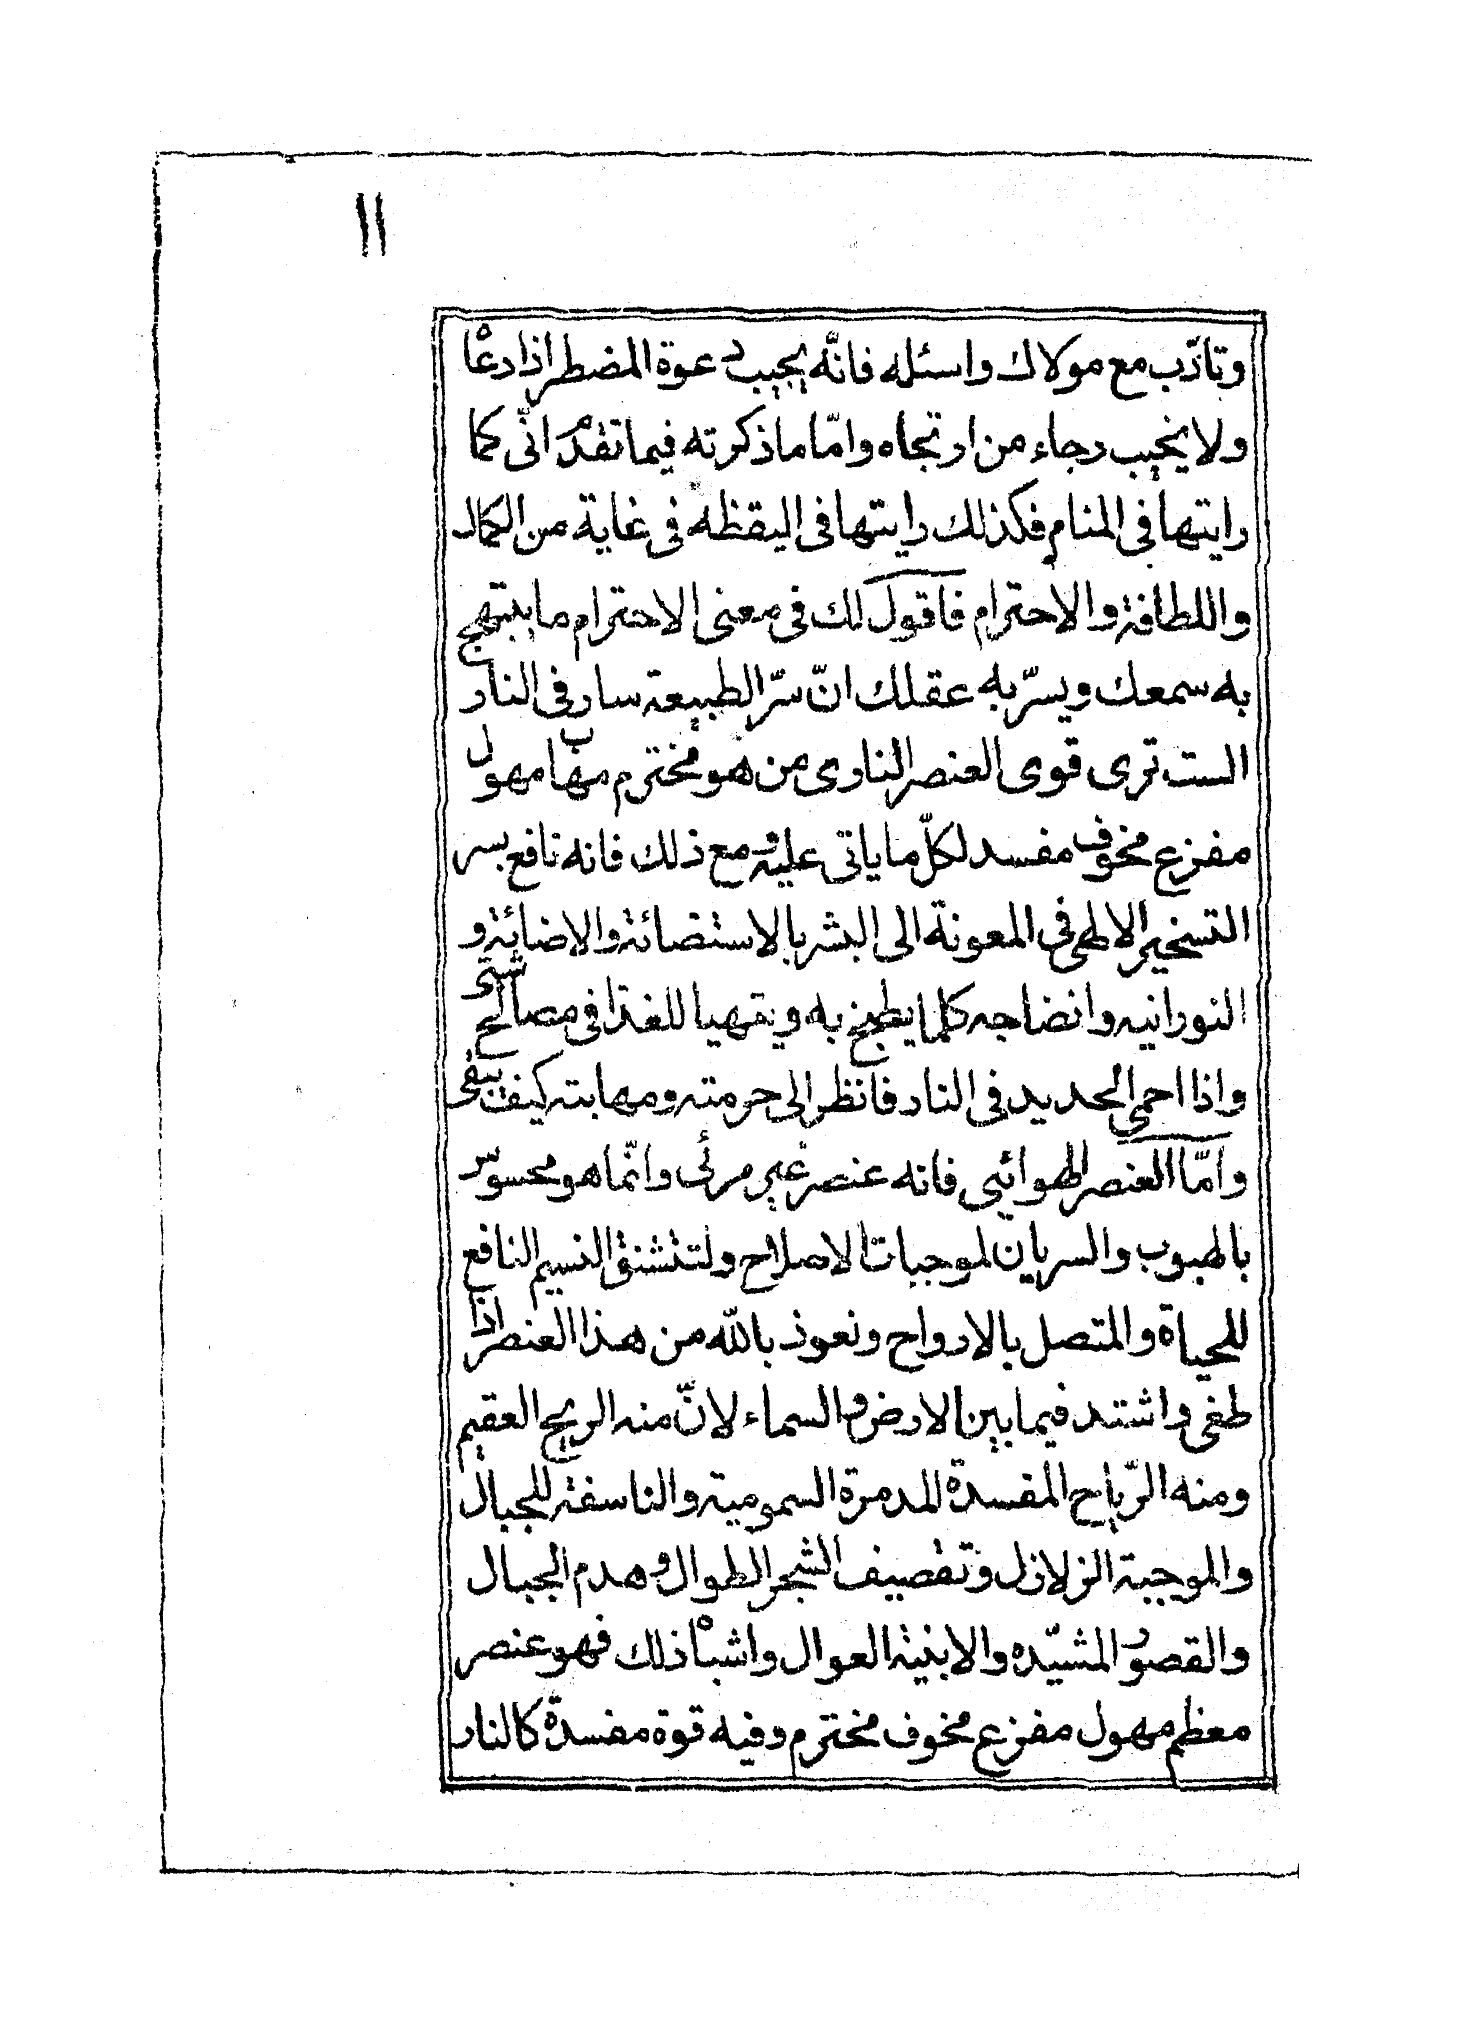 ١١
وتادّب مع مولاك واسئله فانّه يجيب دعوة المضطر اذا دعاه
ولا يخيب رجاء من ارتجاه وامّا ما ذكرته فيما تقدم انّى كما
رايتها فى المنام فكذلك رايتها فى اليقظه فى غاية من الكمال
واللطافة والاحترام فاقول لك فى معنى الاحترام ما يبتهج
به سمعك ويسرّ به عقلك انّ سرّ الطبيعة سار فى النار
الست ترى قوى العنصر النارى من هو محترم مهاب مهول
مفزع مخوف مفسد لكلّ ما ياتى عليه ومع ذلك فانه نافع بسر
التسخير الالهى فى المعونة الى البشر بالاستضائة والاضائة و
النورانيه وانضاجه كلما يطبخ به ويتهيا للغذا فى مصالح شتى
واذا احمى الحديد فى النار فانظر الى حرمته ومهابته كيف يبقى
وامّا العنصر الهوائى فانه عنصر غير مرئى وانّما هو محسوس
بالهبوب والسريان لموجبات الاصلاح ولتنشق النسيم النافع
للحياة والمتصل بالارواح ونعوذ بالله من هذا العنصر اذا
طغى واشتد فيما بين الارض والسماء لانّ منه الريح العقيم
ومنه الرّياح المفسدة المدمرة السمومية والناسفة للجبال
والموجبة الزلازل وتقصيف الشجر الطوال وهدم الجبال
والقصور المشيّده والابنية العوال واشباه ذلك فهو عنصر
معظم مهول مفزع مخوف محترم وفيه قوة مفسدة كالنار